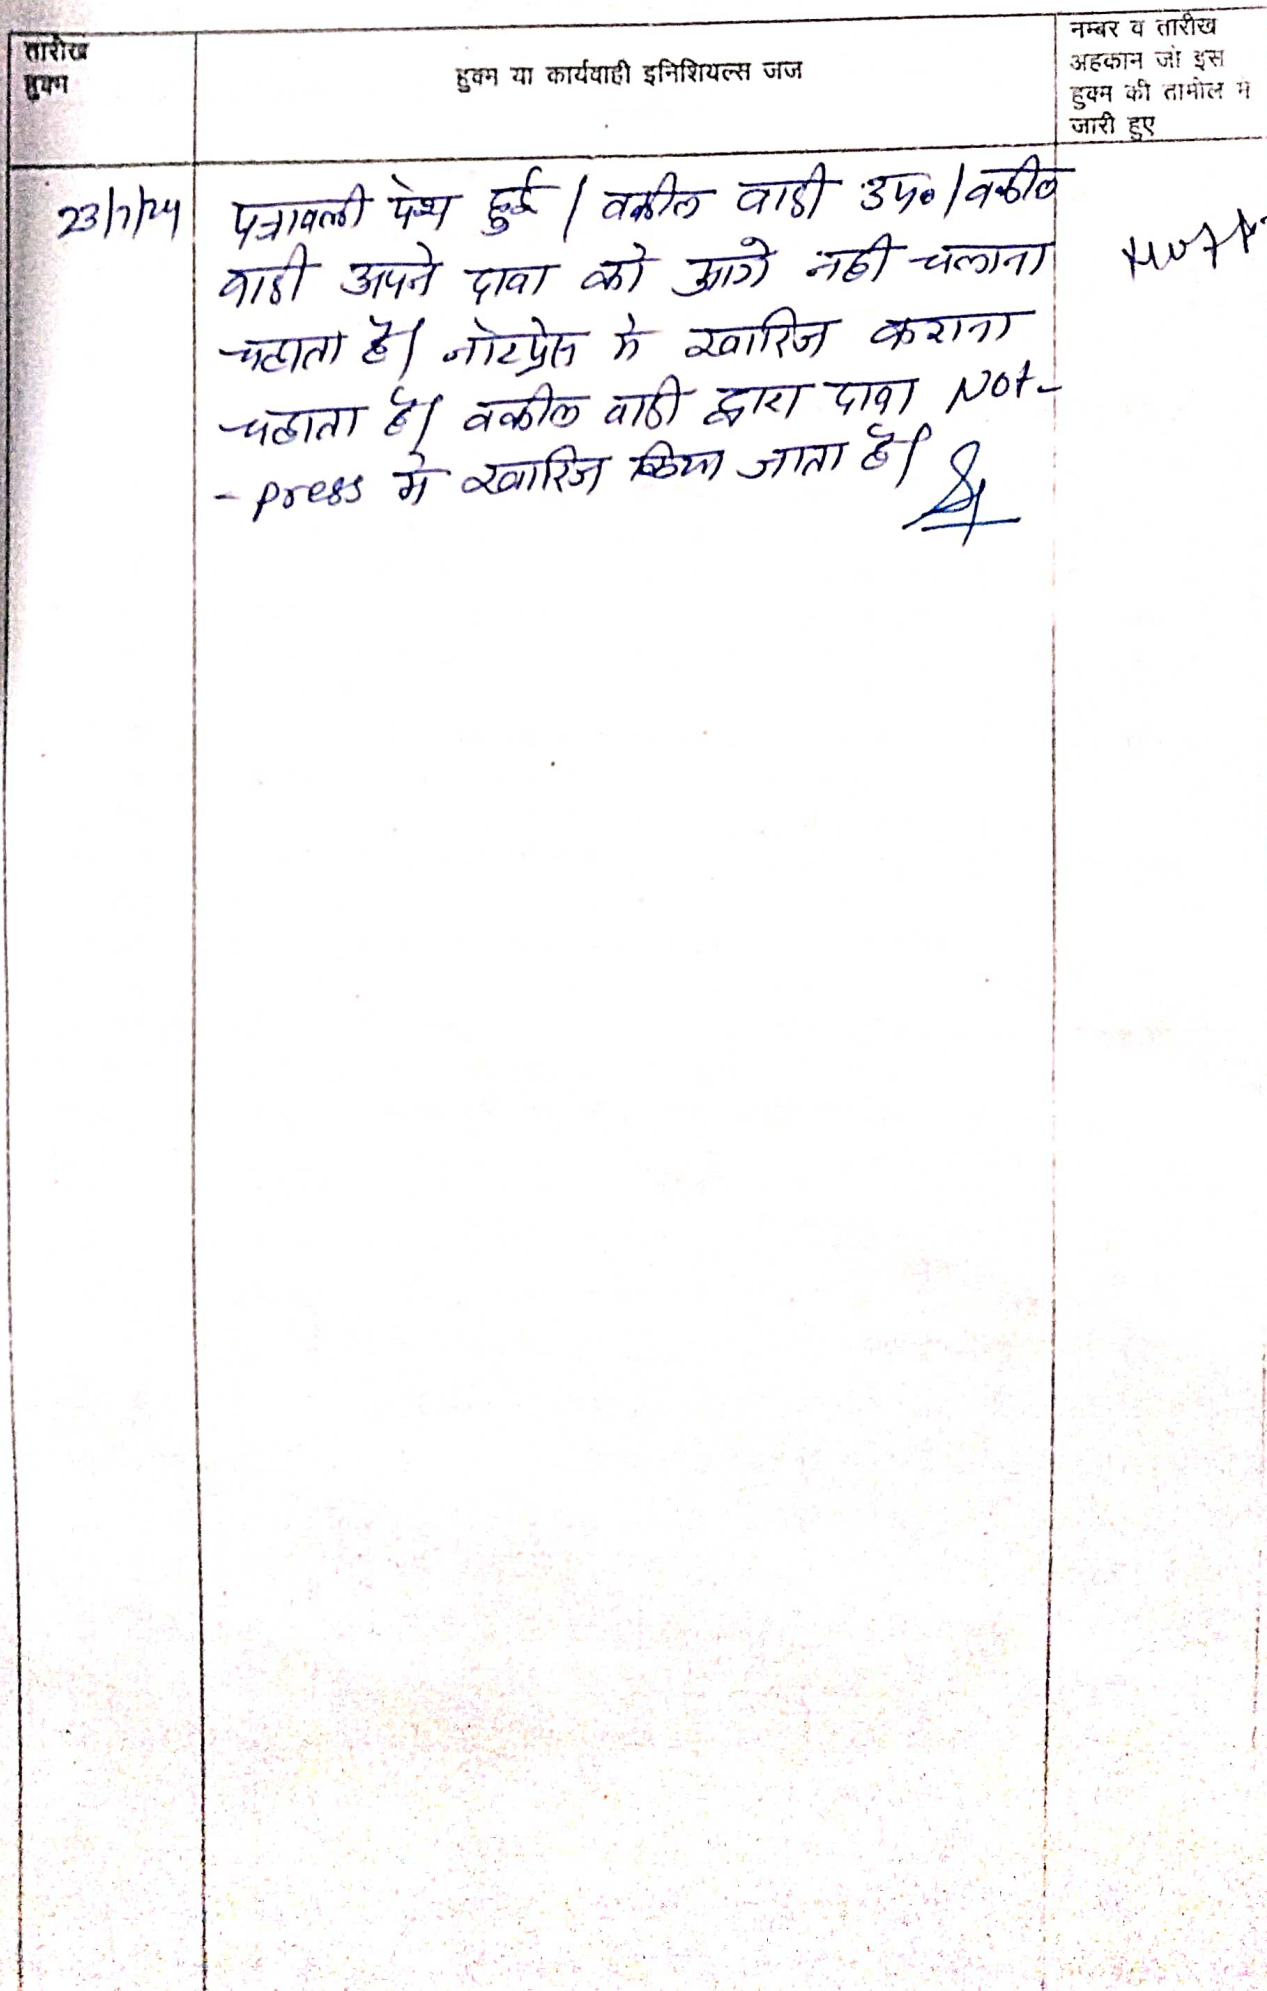 तारीख
हुक्म
हुक्म या कार्यवाही इनिशियल्स जज
नम्बर व तारीख
अहकान जो इस
हुक्म की तामील में
जारी हुए
23/7/24
पत्रावली पेश हुई। वकील वादी उप०। वकील
वादी अपने दावा को आगे नही चलाना
चहाता है। नोटप्रेस मे खारिज कराना
चहाता है। वकील वादी द्वारा दावा Not-
- press मे खारिज किया जाता है।